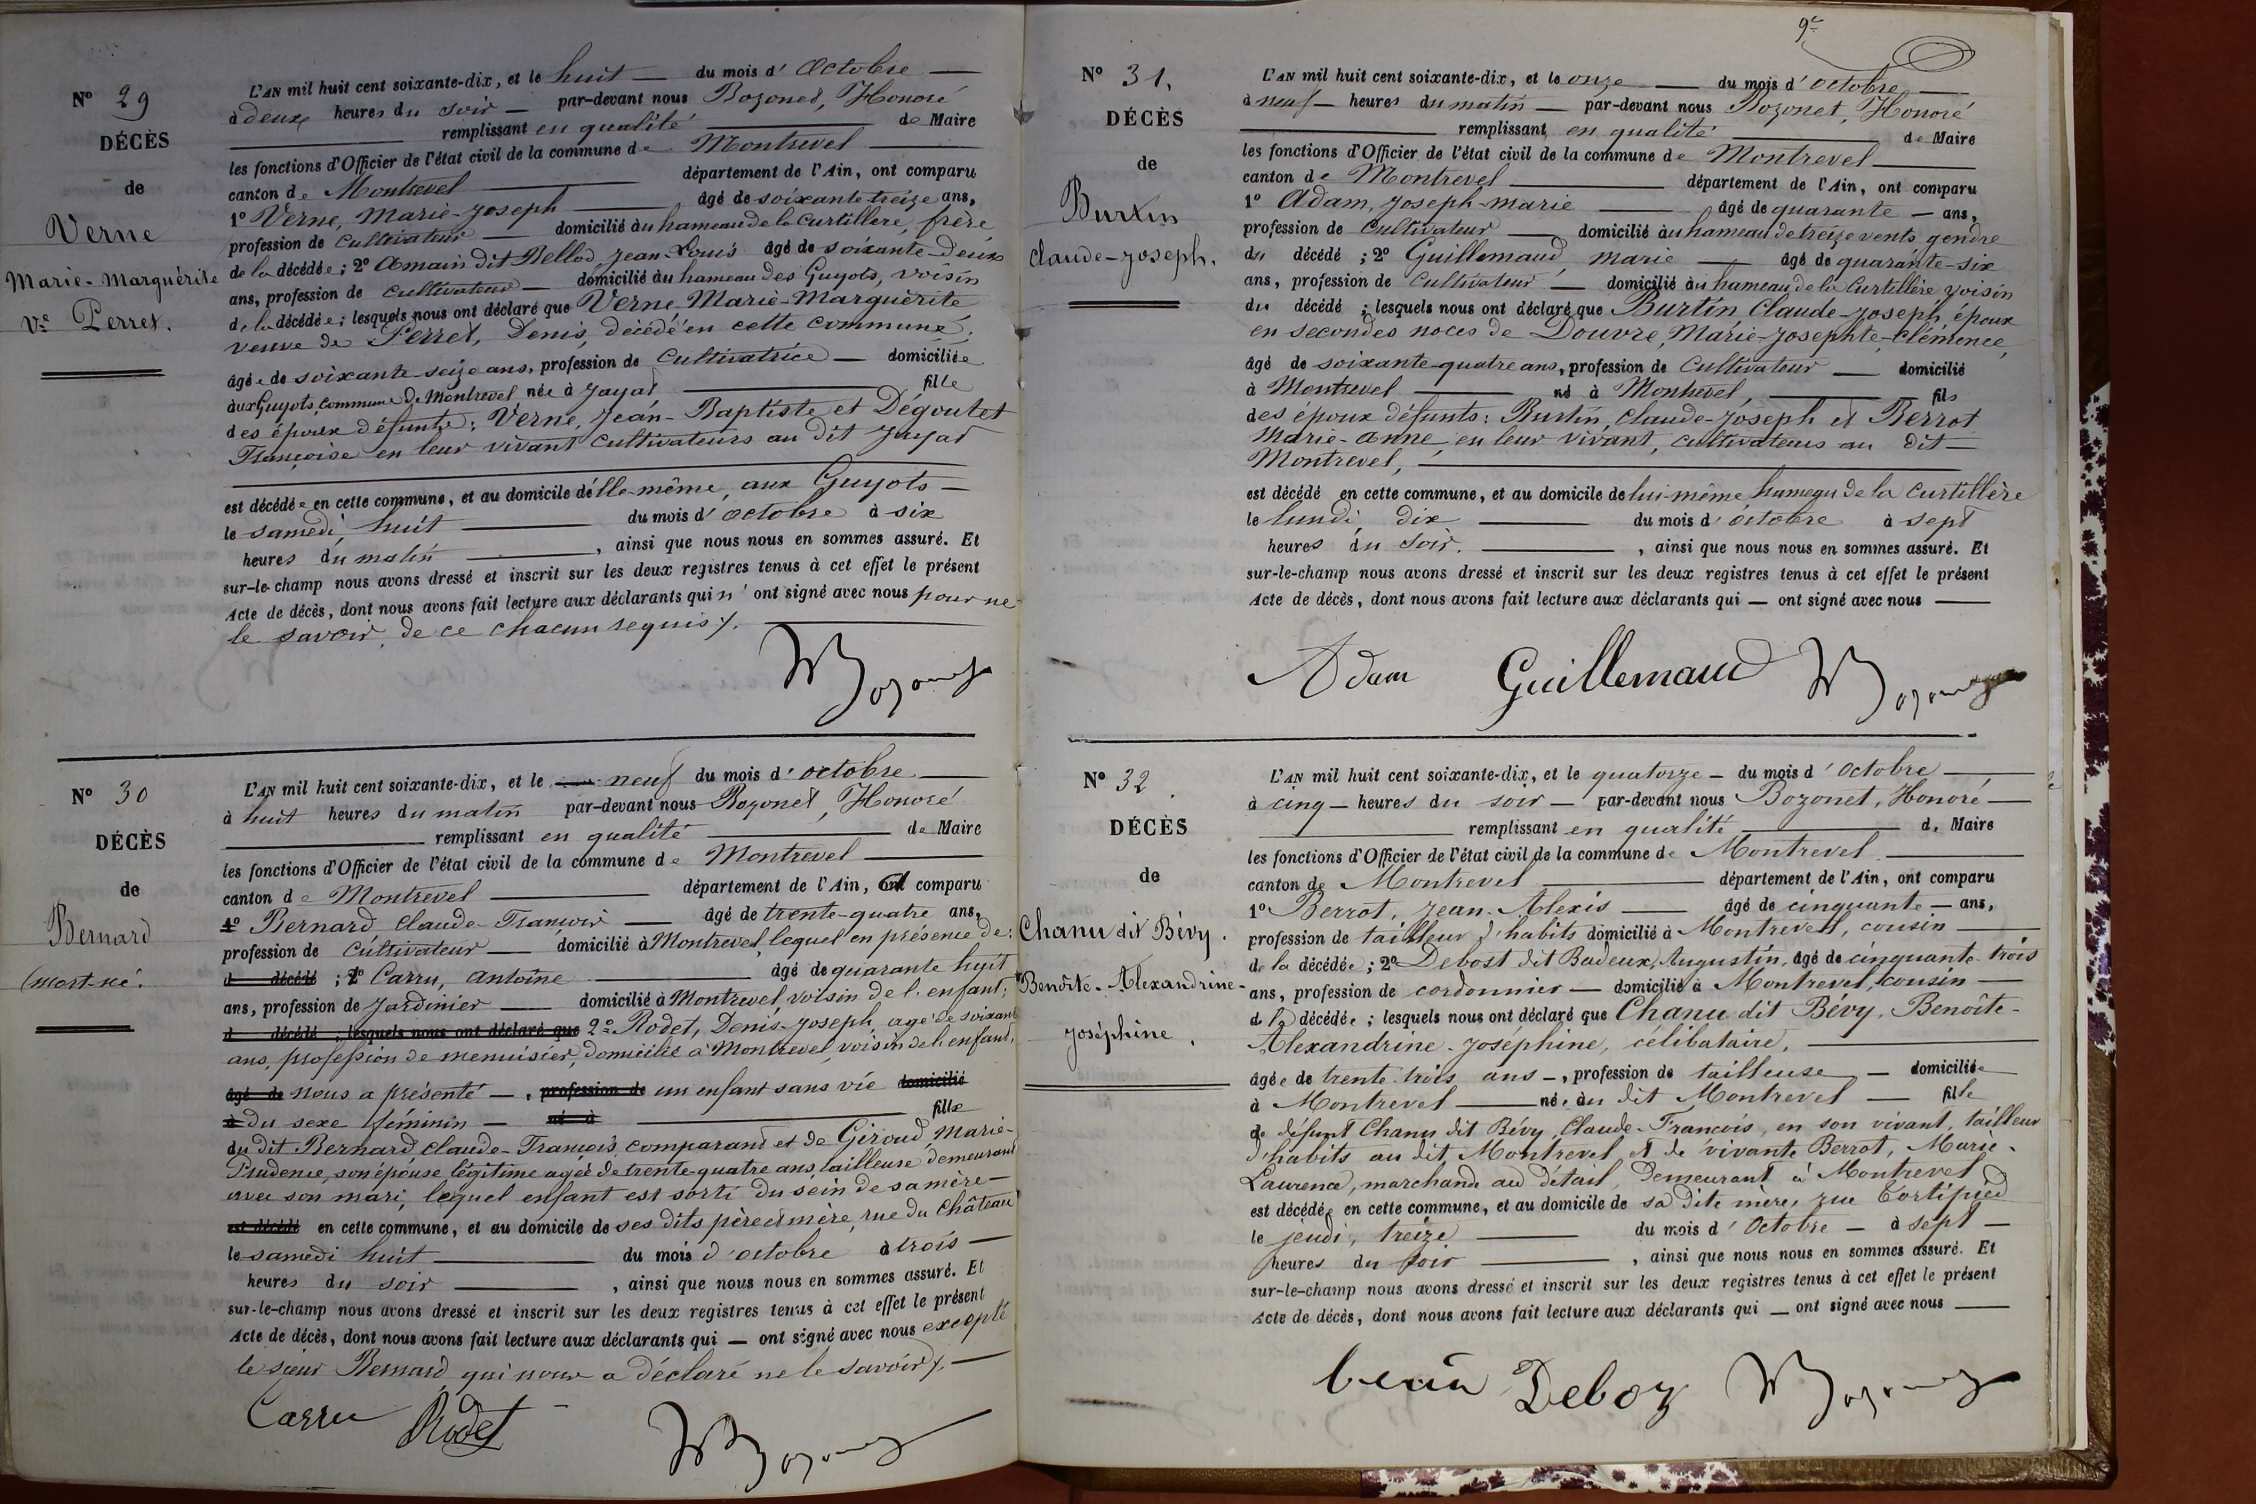 N° 29
DÉCÈS
de
Verne
Marie-Marguérite
Vve Perret.
L'AN mil huit cent soixante-dix, et le huit — du mois d'Octobre —
à deux heures du soir — par-devant nous Bozonet, Honoré
remplissant en qualité — de Maire
les fonctions d'Officier de l'état civil de la commune de Montrevel
canton de Montrevel — département de l'Ain, ont comparu
1° Verne, Marie-Joseph — âgé de soixante treize ans,
profession de Cultivateur — domicilié au hameau de la Curtillère, frère
de la décédée ; 2° Amain dit Bellod, Jean-Louis âgé de soixante-deux
ans, profession de cultivateur — domicilié au hameau des Guyots, voisin
de la décédée ; lesquels nous ont déclaré que Verne Marie-Marguérite
veuve de Perret, Denis, décédé en cette commune,
âgée de soixante-seize ans, profession de Cultivatrice — domiciliée
aux Guyots, commune de Montrevel née à Jayat — fille
des époux défunts : Verne, Jean-Baptiste et Dégoutet
Françoise en leur vivant cultivateurs au dit Jayat
est décédée en cette commune, et au domicile d'elle-même, aux Guyots —
le samedi, huit — du mois d'octobre à six
heures du matin —, ainsi que nous nous en sommes assuré. Et
sur-le-champ nous avons dressé et inscrit sur les deux registres tenus à cet effet le présent
Acte de décès, dont nous avons fait lecture aux déclarants qui n'ont signé avec nous pour ne
le savoir, de ce chacun requis /.
Bozonet
N° 30
DÉCÈS
de
Bernard
(mort-né.
L'AN mil huit cent soixante-dix, et le — neuf du mois d'octobre —
à huit heures du matin par-devant nous Bozonet, Honoré
remplissant en qualité — de Maire
les fonctions d'Officier de l'état civil de la commune de Montrevel —
canton de Montrevel — département de l'Ain, a comparu
1° Bernard Claude-François — âgé de trente-quatre ans,
profession de cultivateur — domicilié à Montrevel, lequel en présence de :
d décédé ; 1° Carru, Antoine — âgé de quarante huit
ans, profession de Jardinier — domicilié à Montrevel voisin de l'enfant ;
d décédé ; lesquels nous ont déclaré que 2° Rodet, Denis-Joseph, agé de soixante
ans, profession de menuisier, domicilié à Montrevel, voisin de l'enfant,
âgé de nous a présenté —, profession de un enfant sans vie domicilié
à du sexe féminin — né à — fille
du dit Bernard, Claude-François comparant et de Giroud, Marie-
Prudence, son épouse légitime agée de trente-quatre ans tailleuse demeurant
avec son mari, lequel enfant est sorti du sein de sa mère —
est décédé en cette commune, et au domicile de ses dits père et mère, rue du Château
le samedi huit — du mois d'octobre à trois —
heures du soir —, ainsi que nous nous en sommes assuré. Et
sur-le-champ nous avons dressé et inscrit sur les deux registres tenus à cet effet le présent
Acte de décès, dont nous avons fait lecture aux déclarants qui — ont signé avec nous excepté
le sieur Bernard qui nous a déclaré ne le savoir /. —
Carru Rodet Bozonet
9e
N° 31.
DÉCÈS
de
Burtin
Claude-Joseph.
L'AN mil huit cent soixante-dix, et le onze — du mois d'octobre —
à neuf — heures du matin — par-devant nous Bozonet, Honoré
remplissant en qualité — de Maire
les fonctions d'Officier de l'état civil de la commune de Montrevel —
canton de Montrevel — département de l'Ain, ont comparu
1° Adam, Joseph-Marie — âgé de quarante — ans,
profession de Cultivateur — domicilié au hameau de treize vents, gendre
du décédé ; 2° Guillemaud, Marie — âgé de quarante-six
ans, profession de Cultivateur — domicilié au hameau de la Curtillère voisin
du décédé ; lesquels nous ont déclaré que Burtin Claude-Joseph, époux
en secondes noces de Douvre, Marie-Josephte-Clémence,
âgé de soixante-quatre ans, profession de Cultivateur — domicilié
à Montrevel — né à Montrevel, — fils
des époux défunts : Burtin, Claude-Joseph et Berrot
Marie-Anne, en leur vivant, cultivateurs au dit —
Montrevel, —
est décédé en cette commune, et au domicile de lui-même hameau de la Curtillère
le lundi, dix — du mois d'octobre à sept
heures du soir. —, ainsi que nous nous en sommes assuré. Et
sur-le-champ nous avons dressé et inscrit sur les deux registres tenus à cet effet le présent
Acte de décès, dont nous avons fait lecture aux déclarants qui — ont signé avec nous —
Adam Guillemaud Bozonet
N° 32.
DÉCÈS
de
Chanu dit Bévy.
Benoîte-Alexandrine-
Joséphine.
L'AN mil huit cent soixante-dix, et le quatorze — du mois d'Octobre —
à cinq — heures du soir — par-devant nous Bozonet, Honoré —
remplissant en qualité — de Maire
les fonctions d'Officier de l'état civil de la commune de Montrevel —
canton de Montrevel — département de l'Ain, ont comparu
1° Berrot, Jean-Alexis — âgé de cinquante — ans,
profession de tailleur d'habits domicilié à Montrevel, cousin —
de la décédée ; 2° Debost dit Badeux, Augustin, âgé de cinquante-trois
ans, profession de cordonnier — domicilié à Montrevel, cousin —
de la décédée ; lesquels nous ont déclaré que Chanu dit Bévy, Benoîte-
Alexandrine-Joséphine, célibataire, —
âgée de trente-trois ans —, profession de tailleuse — domiciliée
à Montrevel — née au dit Montrevel — fille
de défunt Chanu dit Bévy, Claude-François, en son vivant, tailleur
d'habits au dit Montrevel et de vivante Berrot, Marie-
Laurence, marchande au détail, demeurant à Montrevel
est décédée en cette commune, et au domicile de sa dite mère, rue Tortipied
le jeudi, treize — du mois d'Octobre — à sept —
heures du soir —, ainsi que nous nous en sommes assuré. Et
sur-le-champ nous avons dressé et inscrit sur les deux registres tenus à cet effet le présent
Acte de décès, dont nous avons fait lecture aux déclarants qui — ont signé avec nous —
Deboz Bozonet